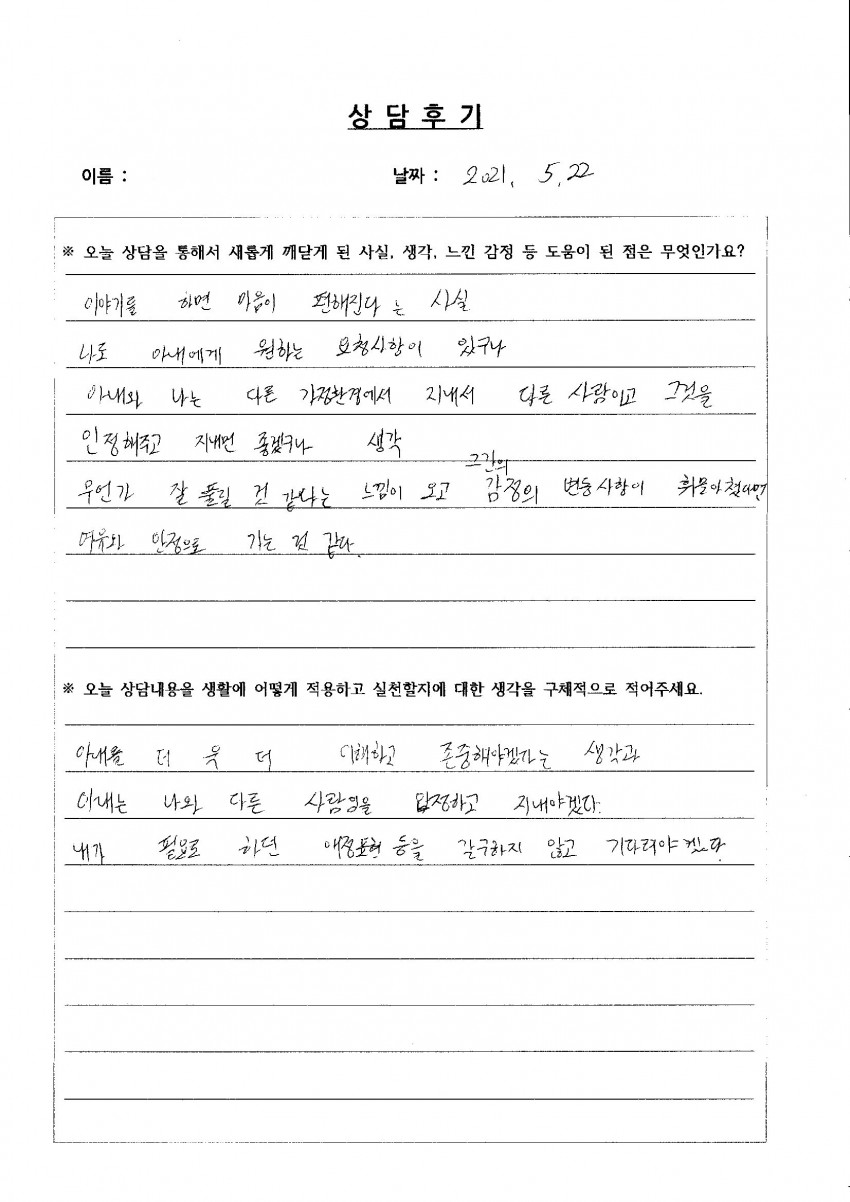 상 담 후 기
이름 : 날짜 : 2021. 5. 22
※ 오늘 상담을 통해서 새롭게 깨닫게 된 사실, 생각, 느낀 감정 등 도움이 된 점은 무엇인가요?
이야기를 하면 마음이 편해진다 는 사실
나도 아내에게 원하는 요청사항이 있구나
아내와 나는 다른 가정환경에서 지내서 다른 사람이고 그것을
인정해주고 지내면 좋겠구나 생각
그간의
무언가 잘 풀릴 것 같다는 느낌이 오고 감정의 변동사항이 휘몰아쳤다면
여유와 안정으로 가는 것 같다.
※ 오늘 상담내용을 생활에 어떻게 적용하고 실천할지에 대한 생각을 구체적으로 적어주세요.
아내를 더 욱 더 이해하고 존중해야겠다는 생각과
아내는 나와 다른 사람임을 인정하고 지내야겠다.
내가 필요로 하던 애정표현 등을 갈구하지 않고 기다려야겠다.